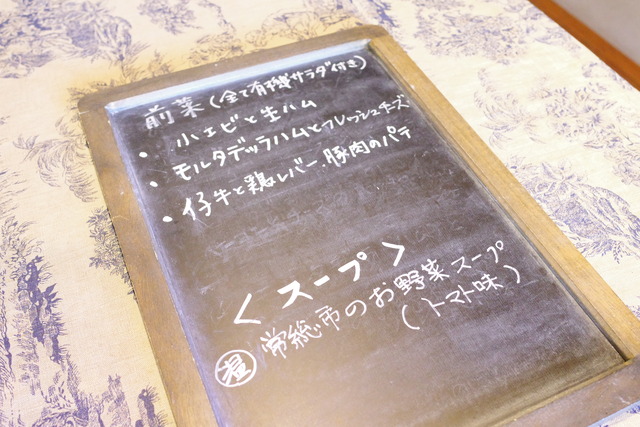 前菜(全て有機サラダ付き)
・小エビと生ハム
・モルタデッラハムとフレッシュチーズ
・仔牛と鶏レバー、豚肉のパテ
<スープ>
温 常総市のお野菜スープ
(トマト味)